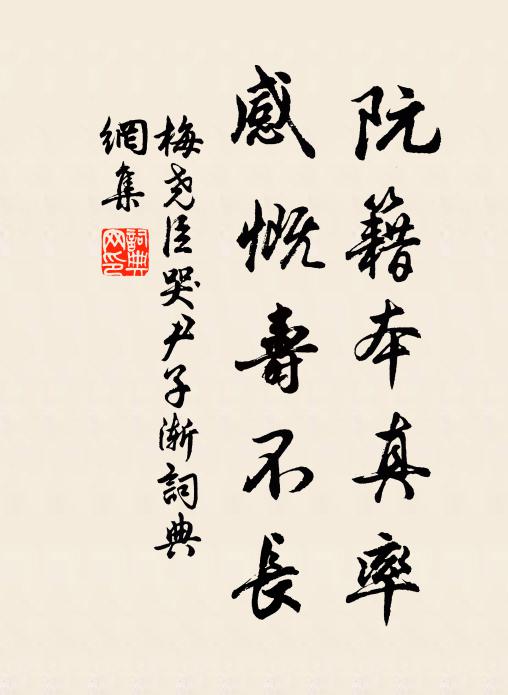 阮籍本真率
感慨壽不長
梅尧臣哭尹子漸詞典
網集
詞典
网印